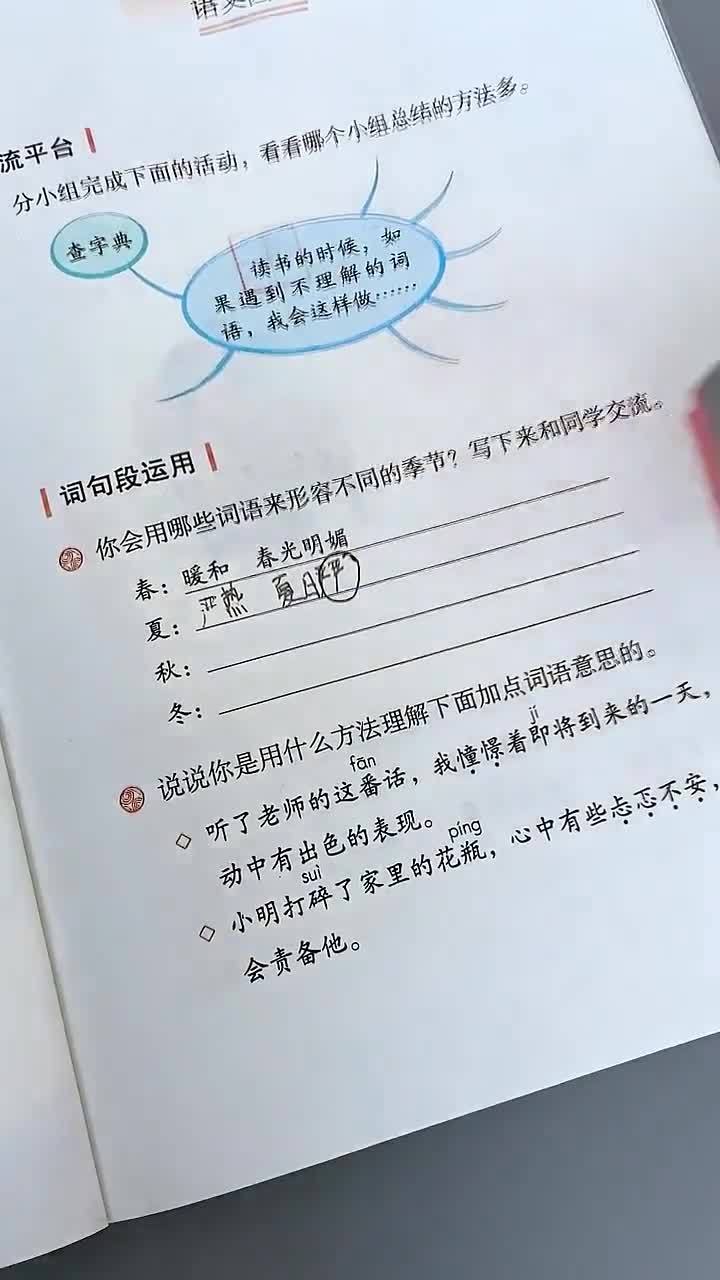 流平台
分小组完成下面的活动，看看哪个小组总结的方法多。
查字典
读书的时候，如
果遇到不理解的词
语，我会这样做……
词句段运用
你会用哪些词语来形容不同的季节？写下来和同学交流。
春：暖和 春光明媚
夏：严热 夏日
秋：
冬：
说说你是用什么方法理解下面加点词语意思的。
fān jí
听了老师的这番话，我憧憬着即将到来的一天，
动中有出色的表现。
suì píng
小明打碎了家里的花瓶，心中有些忐忑不安，
会责备他。